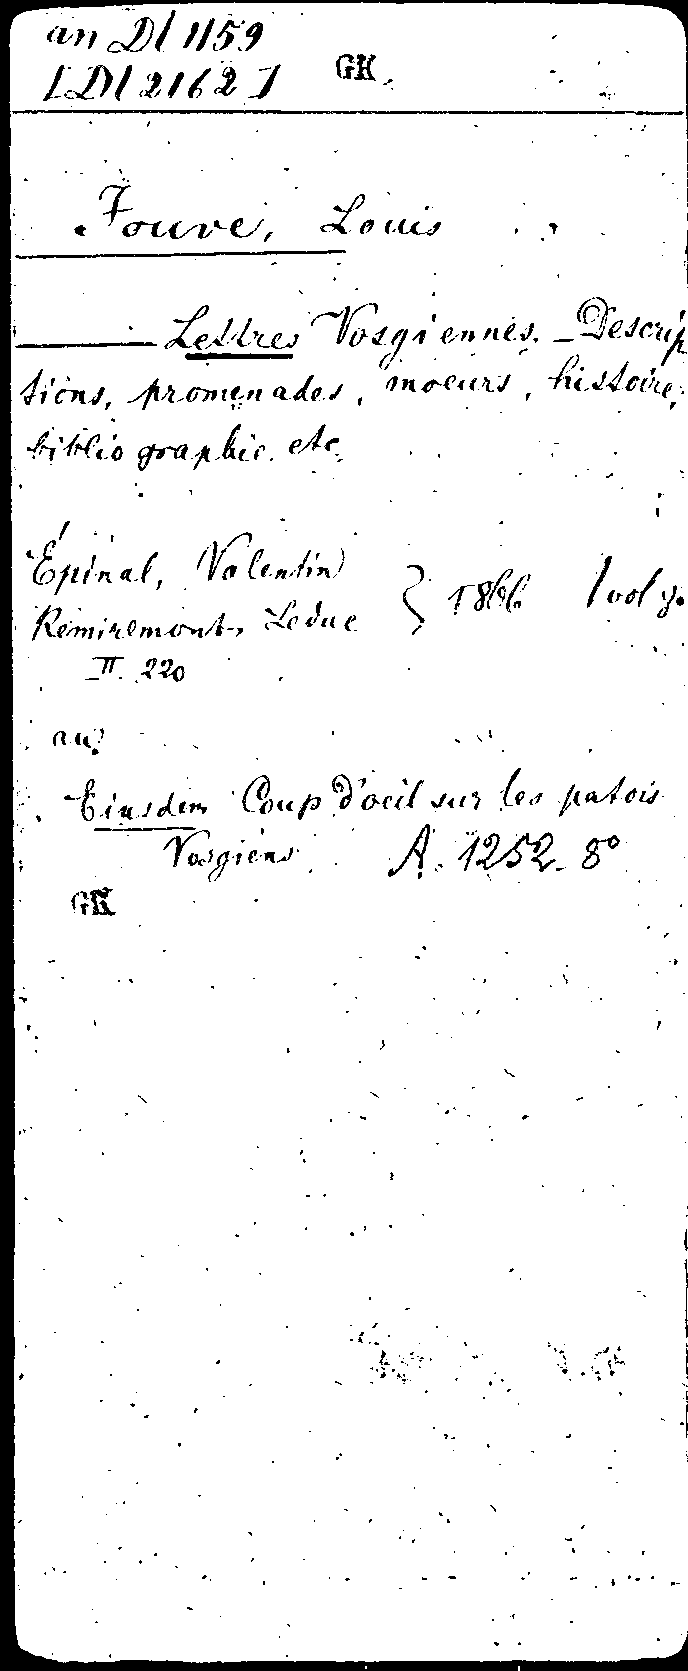 an Dl 1159
[Dl 2162] GK
Jouve, Louis
Lettres Vosgiennes. - Descrip
tions, promenades, moeurs, histoire,
bibliographie. etc.
Épinal, Valentin
Remiremont, Leduc } 1866 1 vol
II. 220
an
Eiusdem Coup d'oeil sur les patois
Vosgiens A. 1252. 8°
GK